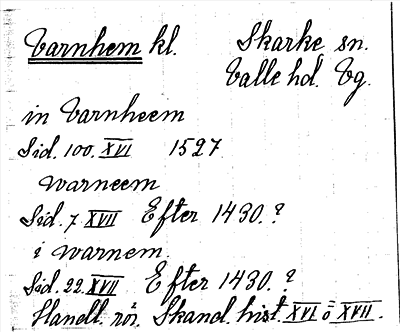 Varnhem kl. Skarke sn.
Valle hd. Vg.
in Varnheem
Sid. 100. XVI 1527.
warneem
Sid. 7 XVII Efter 1430.?
i warnem.
Sid. 22. XVII Efter 1430.?
Handl. rör. Skand. hist. XVI o XVII.